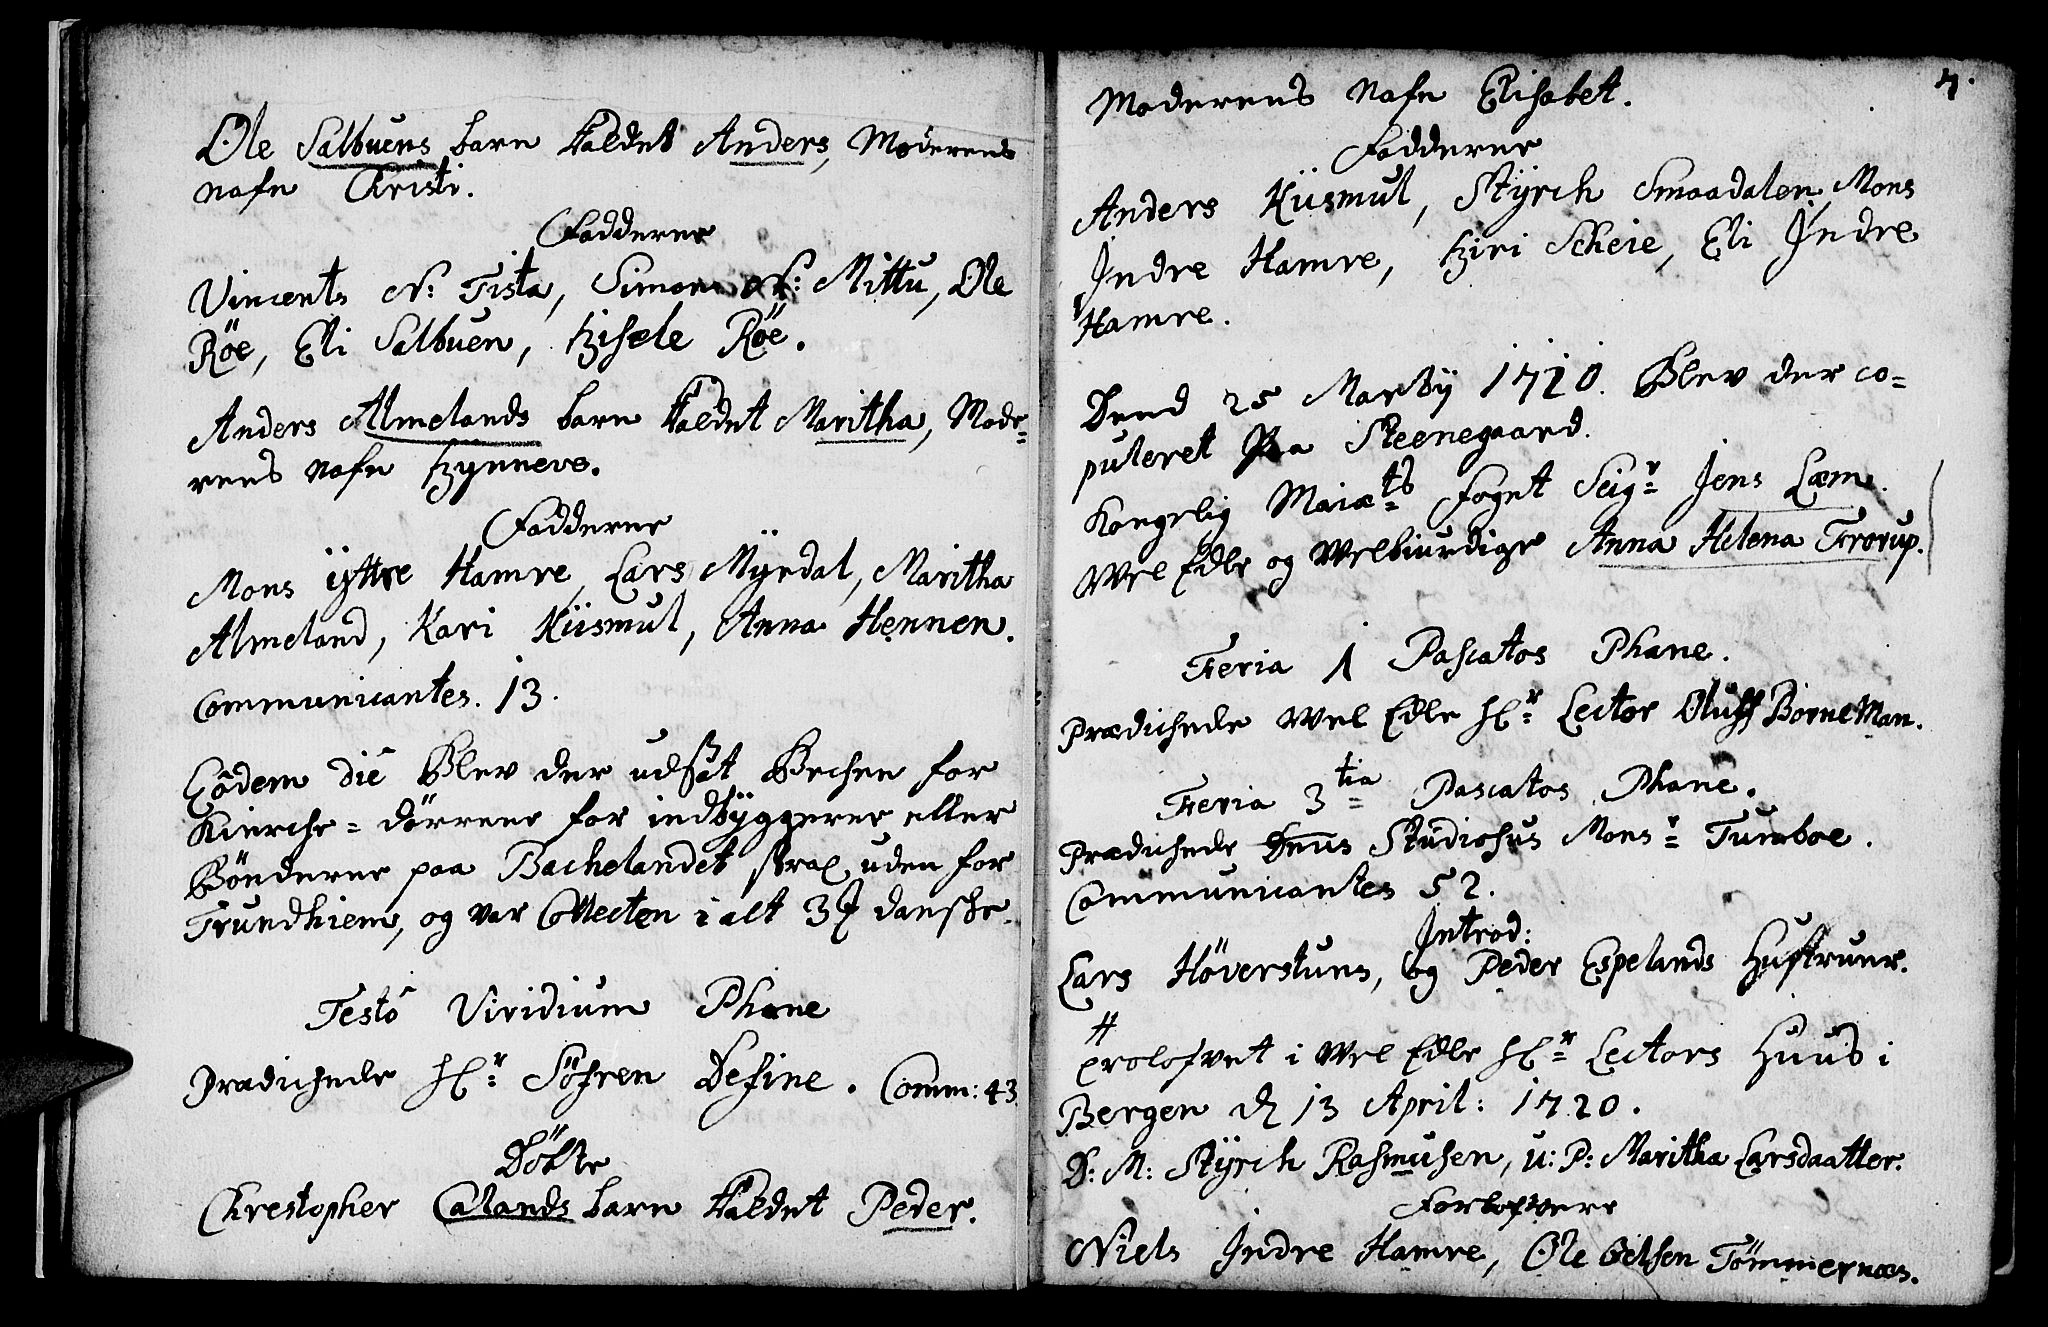 Ole Salbuens barn kaldet Anders, Moderens
nafn Christi.
Fadderne
Vincents N: Tista, Simon N: Mittu, Ole
Röe, Eli Salbuen, Gisele Röe.
Anders Almelands barn kaldet Maritha, Mode=
rens nafn Gynneve.
Fadderne
Mons Yttre Hamre, Lars Myrdal, Maritha
Almeland, Kari Kiismul, Anna Hennen.
Communicantes. 13.
Eôdem die Blev der udsat Bechen for
Kierche=dörrene for indbyggerne eller
Bönderne paa Bachelandet strax uden for
Trundhiem, og var Collecten i alt danske.
Festô Viridium Phane
Prædichede Hr. Söfren Define. Comm: 43.
Döbte
Christopher Calands barn kaldet Peder.
7.
Moderens nafn Elisabet.
Fadderne
Anders Kiismul, Styrch Smaadalen, Mons
Indre Hamre, Giri Scheie, Eli Indre
Hamre.
Dend 25 Marty 1720. Blev der co=
puleret Paa Steenegaard.
Kongelig Maiæts Foget Seigr. Jens Lem.
Wel Edle og Welbiurdige Anna Helena Frorup.
Feria 1 Pascatos Phane.
Prædichede Wel Edle Hr. Lector Oluff BorneMan.
Feria 3tia Pascatos Phane.
Prædichede Dnus Studiosus Monsr. Tumboe.
Communicantes 52.
Introd:
Lars Höverstuns, og Peder Espelands Hustruer.
#
Trolofvet i Wel Edle Hr. Lectors Huus i
Bergen d 13 April: 1720.
D: M: Styrch Rasmusen, u: P: Maritha Larsdaatter.
Forlofvere
Niels Indre Hamre, Ole Oelsen Tömmernæs.